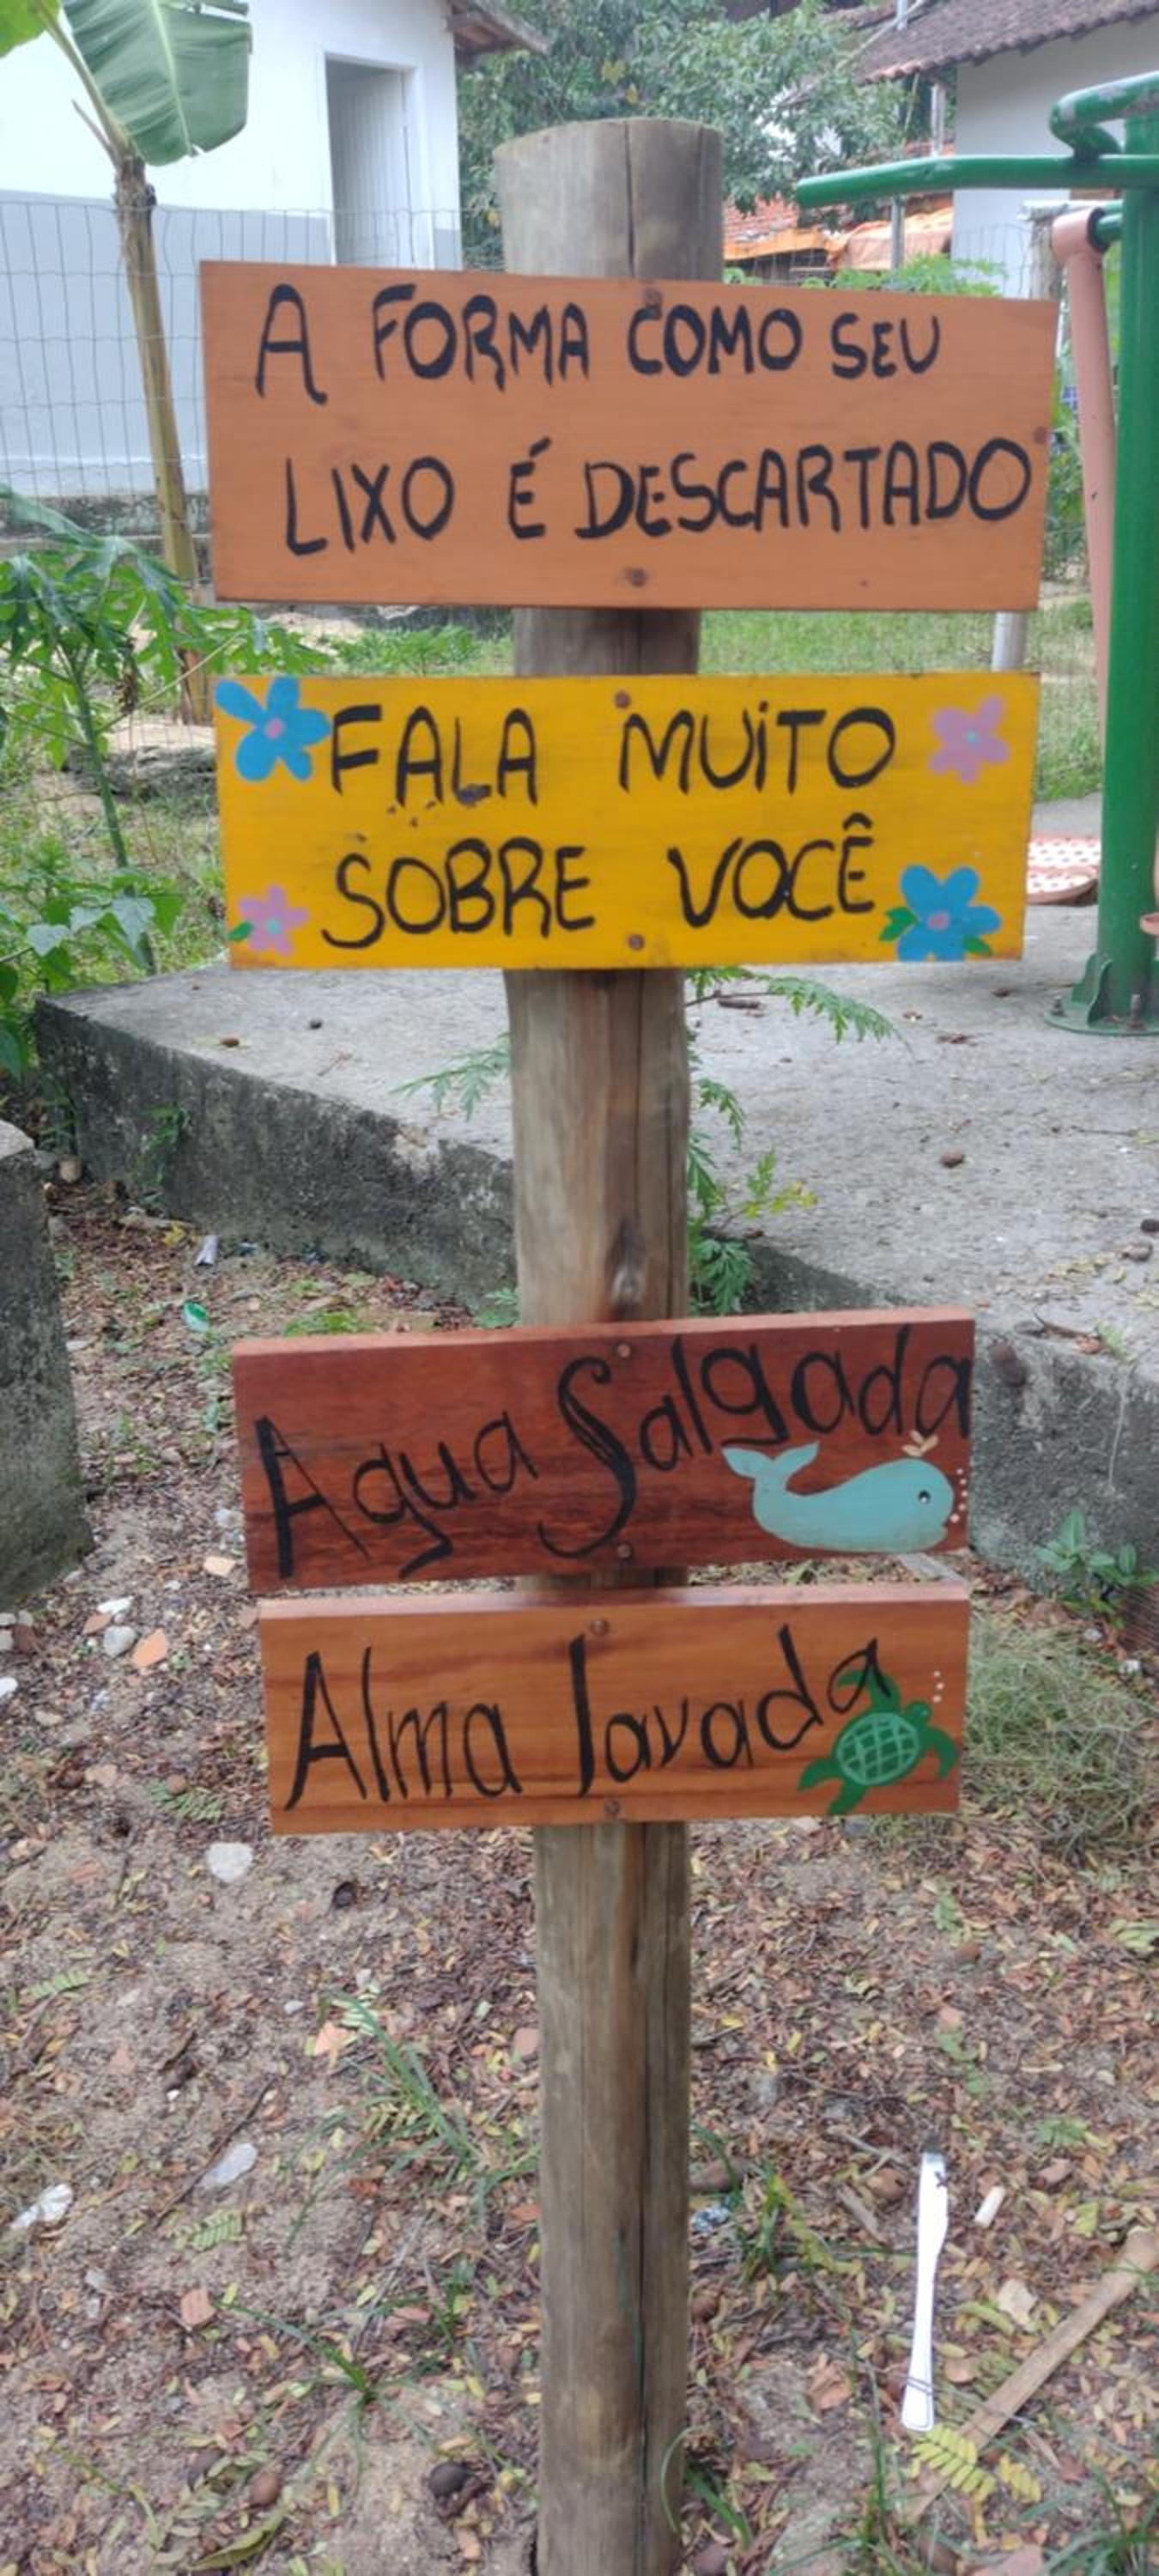 A FORMA COMO SEU
LIXO É DESCARTADO
FALA MUITO
SOBRE VOCÊ
Agua Salgada
Alma lavada